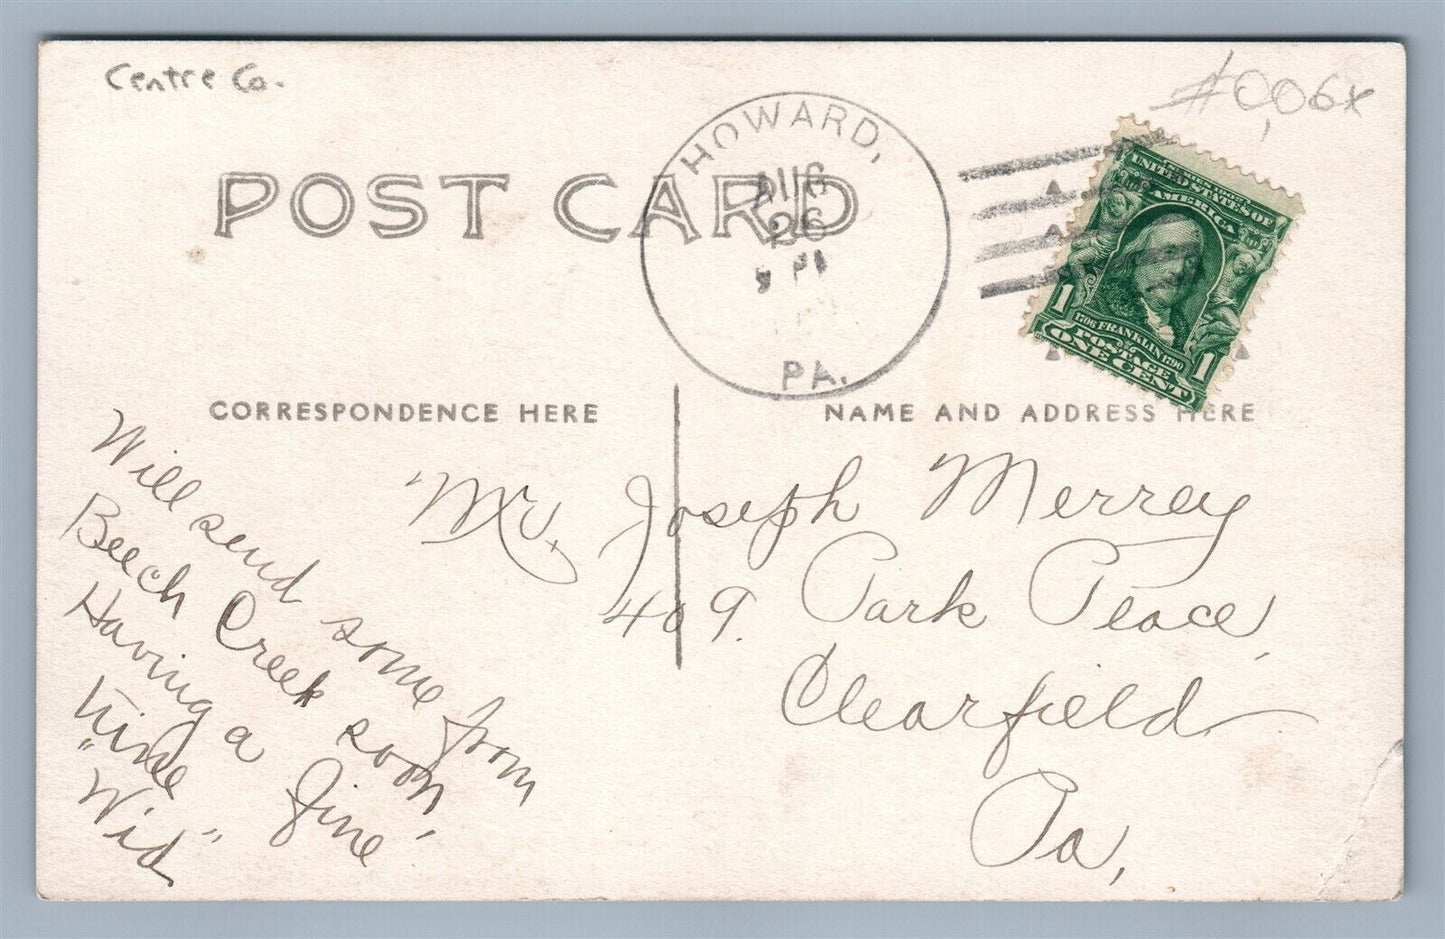 Centre Co.
#0,06x
POST CARD
HOWARD,
AUG
26
PA.
UNITED STATES OF
AMERICA
1 1
1706 FRANKLIN 1790
POSTAGE
ONE CENT
CORRESPONDENCE HERE
NAME AND ADDRESS HERE
Will send some from
Beech Creek soon,
Having a fine
time
"Wid"
Mr. Joseph Merrey
409. Park Place,
Clearfield
Pa,